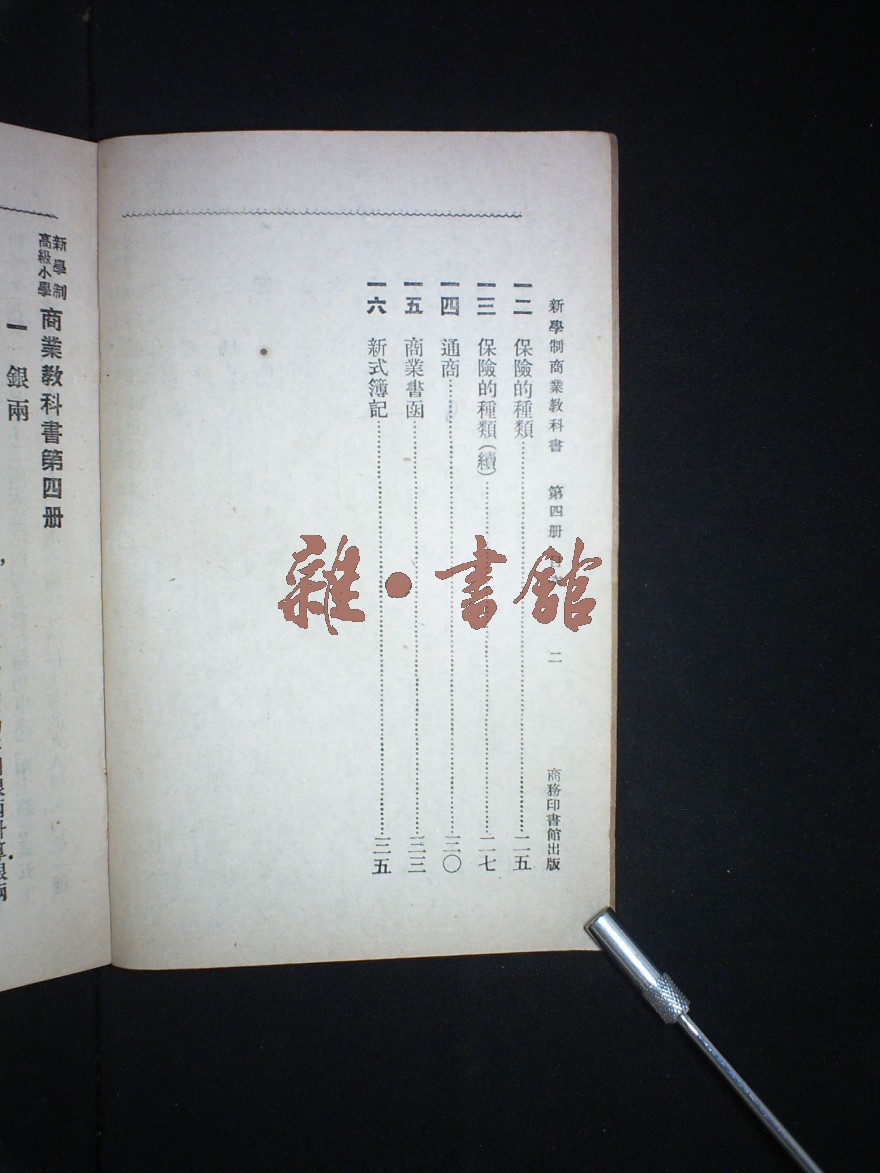 新學制商業教科書 第四册 二 商務印書館出版
一二 保險的種類 二五
一三 保險的種類(續) 二七
一四 通商 三〇
一五 商業書函 三三
一六 新式簿記 三五
新學制
高級小學
商業教科書第四册
一 銀兩
雜·書館